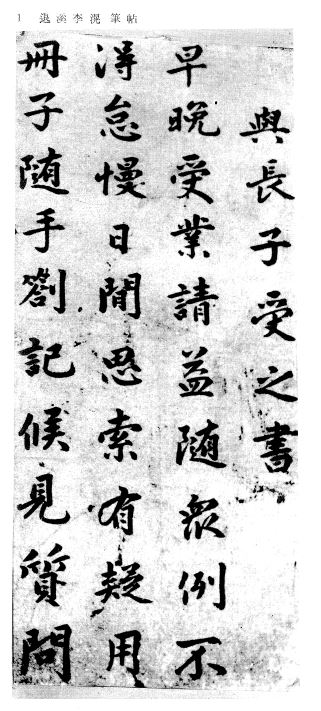 1 退溪李滉筆帖
與長子受之書
早晩受業請益随衆例不
淂怠慢日間思索有疑用
冊子随手劄記候見質問